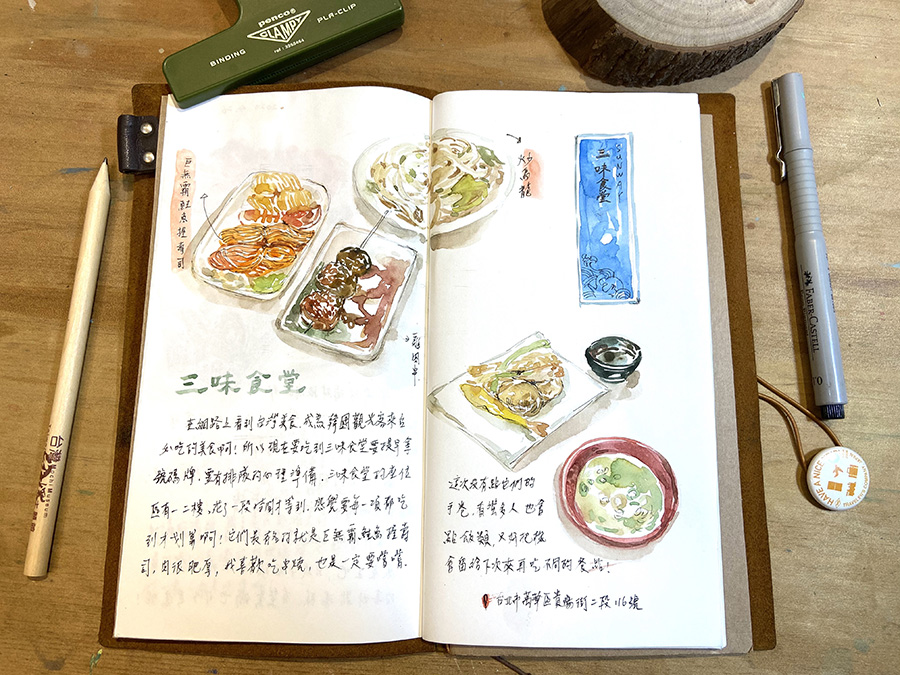 pencoe
CLAMPY
PLA-CLIP
BINDING
巨無霸鮭魚握壽司
炒烏龍
SUNWAY
三味食堂
三味食堂
在網路上看到台灣美食,成為韓國觀光客來台
必吃的美食啊!所以現在要吃到三味食堂要提早拿
號碼牌,要有排隊的心理準備,三味食堂的座位
區有一二樓,花了一段時間才等到,感覺要每一項都吃
到才划算啊!它們最有名的就是巨無霸鮭魚握壽
司,肉很肥厚,我喜歡吃串燒,也是一定要嚐嚐.
這次沒有點它們的
手卷,有蠻多人也會
點飯類,又可
下次來再吃不同的餐點!
台北市萬華區貴陽街二段116號
台灣
FABER-CASTELL
HAVE A NICE